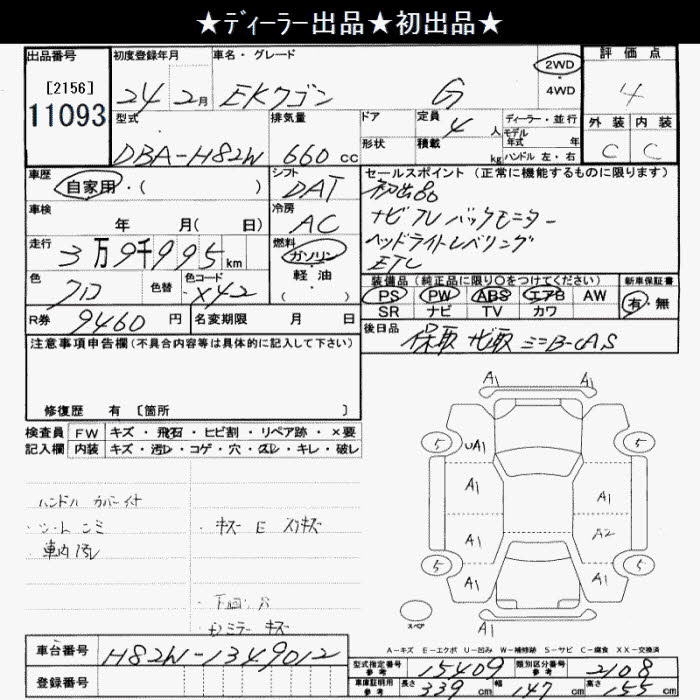 ★ディーラー出品★初出品★
出品番号 初度登録年月 車名・グレード 評価点
[2156]
11093
24 2月 EKワゴン G 2WD・4WD 4
型式 排気量 ドア 定員 4人 ディーラー・並行
モデル年式 年
外装 内装
DBA-H82W 660cc 形状 積載 kg ハンドル 左・右 C C
車歴 シフト セールスポイント (正常に機能するものに限ります)
自家用・( ) DAT 初出品
車検 冷房 ナビ TV バックモニター
年 月( 日) AC ヘッドライトレベリング
走行 燃料 ETC
3万9千995km ガソリン・軽油・( )
色 色替 色コード 装備品(純正品に限り○をつけてください) 新車保証書
クロ X42 PS PW ABS エアB AW 有・無
SR ナビ TV カワ
R券 9460円 名変期限 月 日 後日品 保取 ナビ取 ミニB-CAS
注意事項申告欄(不具合内容等は具体的に記入して下さい)
修復歴 有 〔箇所 〕
検査員 FW キズ・飛石・ヒビ割・リペア跡・×要
記入欄 内装 キズ・汚レ・コゲ・穴・スレ・キレ・破レ
ハンドルカバー付
・シートシミ
・車内汚レ
・キズ E スリキズ
・ミラーキズ
A1 A1
5 UA1 5
A1 A1
A1 A2
5 A1 A1 5
スペア A1
A-キズ E-エクボ U-凹み W-補修跡 S-サビ C-腐食 XX-交換済
車台番号 H82W-1349012
登録番号
型式指定番号 参考 15409 類別区分番号 参考 2108
車庫証明用 参考 長さ 339cm 幅 147cm 高さ 55cm